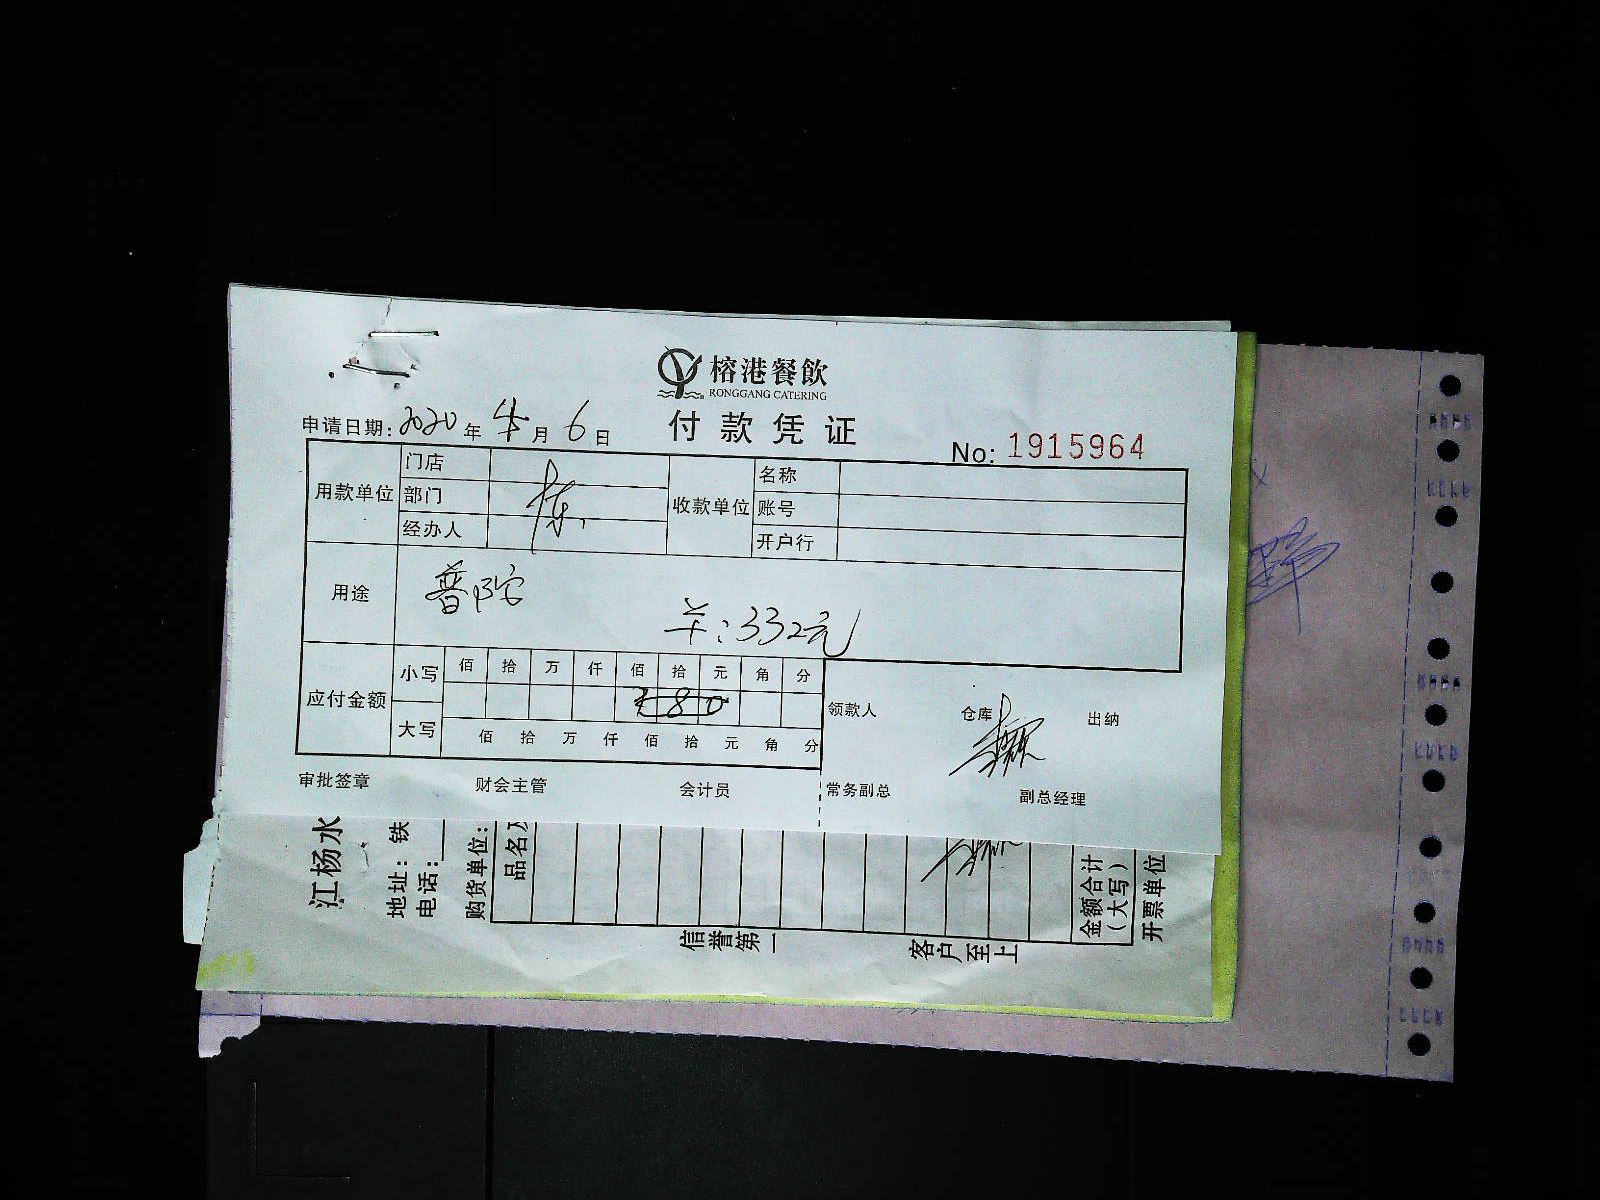 榕港餐飲
RONGGANG CATERING
付款凭证
申请日期: 2020年 月6日
No: 1915964
用款单位 门店 收款单位 名称
部门 账号
经办人 开户行
用途 普陀
羊:332元
应付金额 小写 佰 拾 万 仟 佰 拾 元 角 分
80
大写 佰 拾 万 仟 佰 拾 元 角 分
领款人 仓库 出纳
审批签章 财会主管 会计员 常务副总 副总经理
江杨水
地址: 铁
电话:
购货单位:
品名及
金额合计
(大写)
开票单位
信誉第一 客户至上